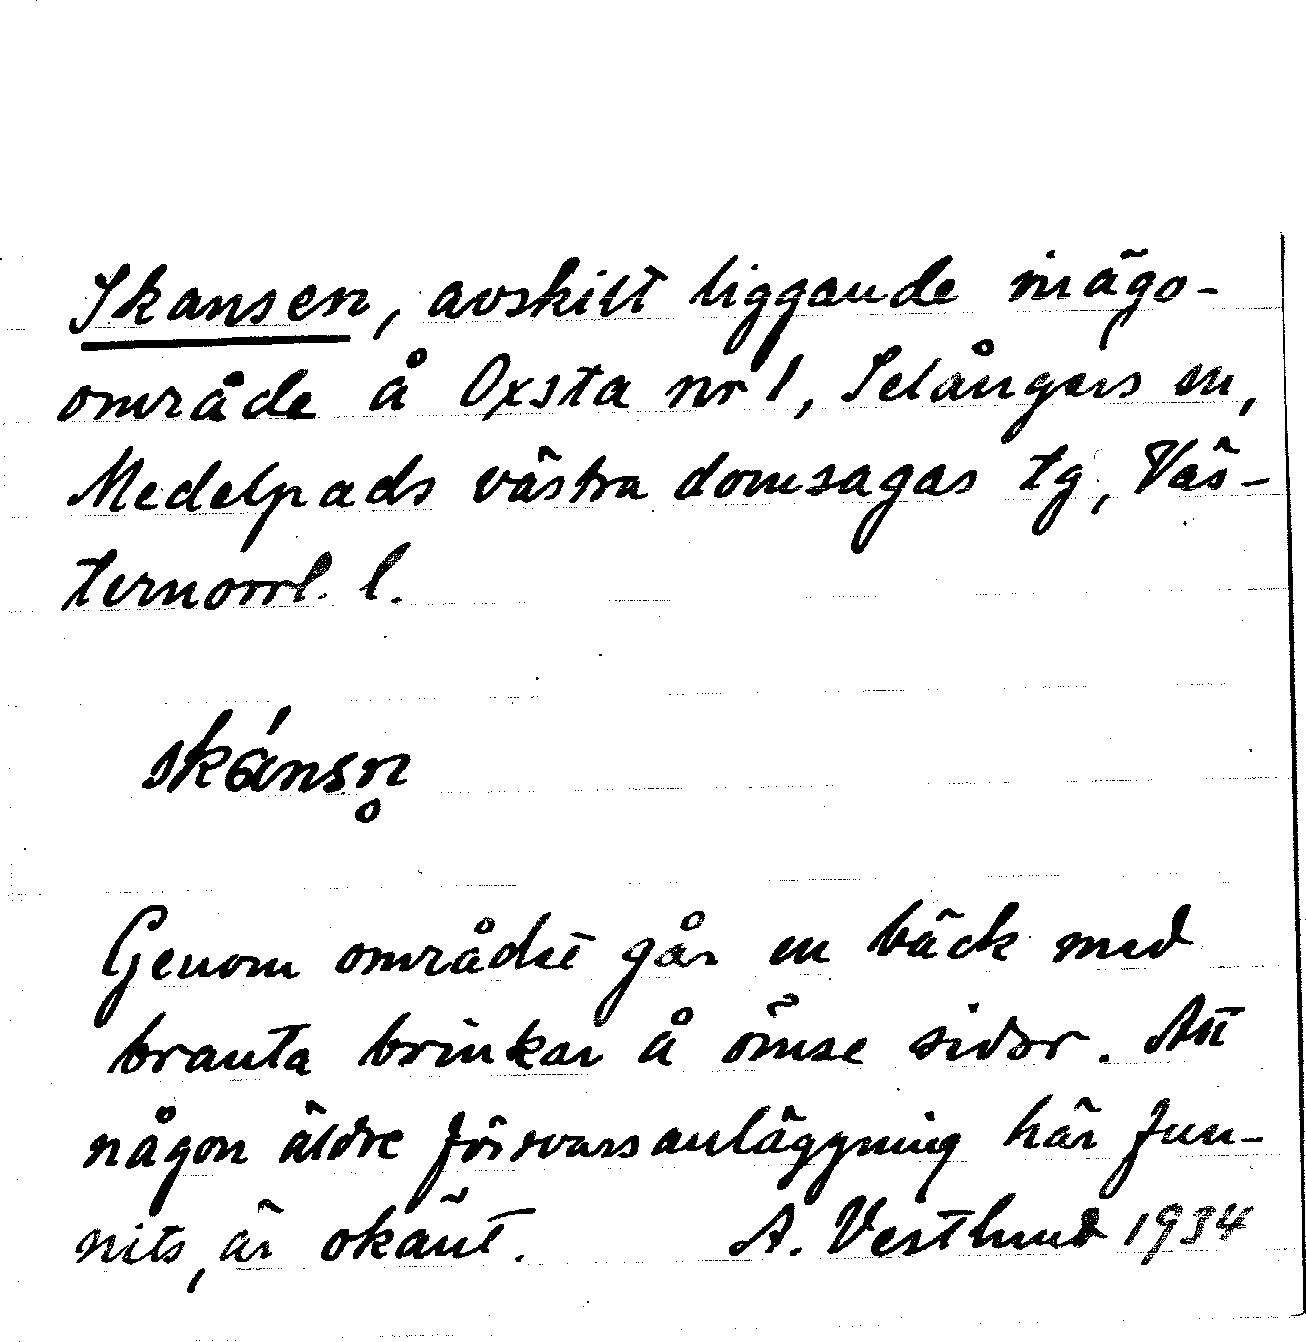 Skansen, avskilt liggande inägo-
område å Oxsta nr 1, Selångers sn,
Medelpads västra domsagas tg, Väs-
ternorrl. l.
skánsn̥
Genom området går en bäck med
branta brinkar å ömse sidor. Att
någon äldre försvarsanläggning här fun-
nits, är okänt. A. Vestlund 1934